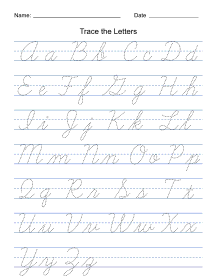 Name: Date
Trace the Letters
A a B b C c D d
E e F f G g H h
I i J j K k L l
M m N n O o P p
Q q R r S s T t
U u V v W w X x
Y y Z z